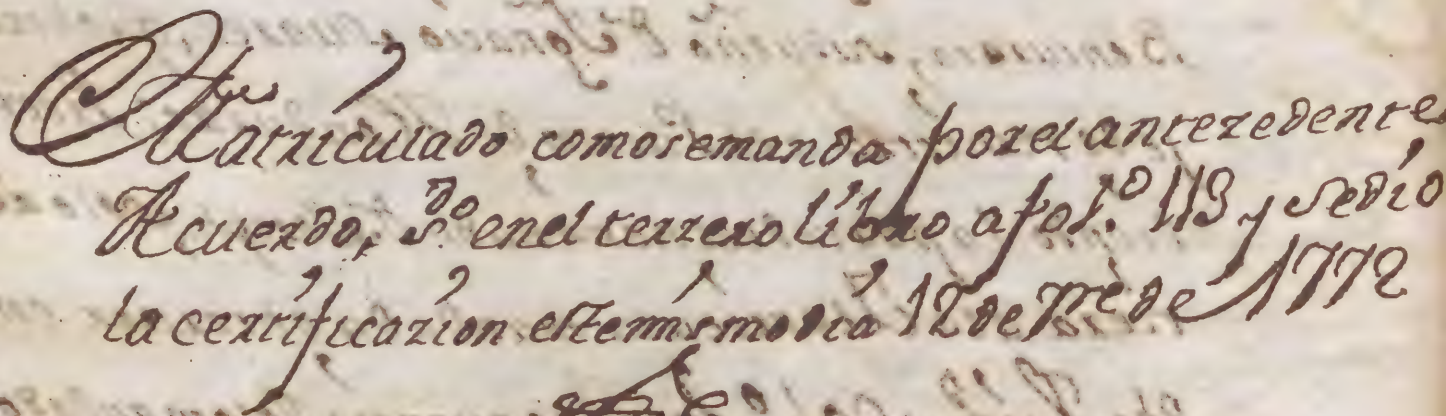 Matriculado como se manda por el antezedente
Acuerdo, s.do en el terzero libro a fol.º 113 y se dio
la certificazion este mismo dia 12 de re de 1772